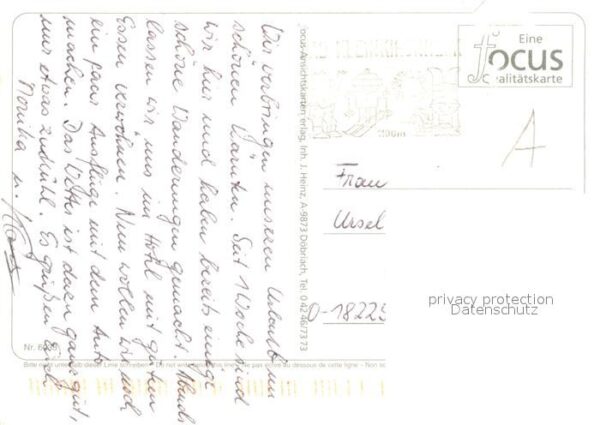 Wir verbringen unseren Urlaub im
schönen Kärnten. Seit 1 Woche sind
wir hier und haben bereits einige
schöne Wanderungen gemacht. Abends
lassen wir uns im Hotel mit gutem
Essen verwöhnen. Nun wollen wir noch
ein paar Ausflüge mit dem Auto
machen. Das Wetter ist ganz gut,
nur etwas zu kühl. Es grüßen Euch
Monika u.
Focus-Ansichtskarten-Verlag, Inh. J. Heinz, A-9873 Döbriach, Tel. 0 42 46/73 73
Eine
focus
Qualitätskarte
A
Frau
Ursel
D-18225
privacy protection
Datenschutz
Nr.
Bitte nicht unterhalb dieser Linie schreiben – Do not write below this line – Ne pas écrire au dessous de cette ligne – Non